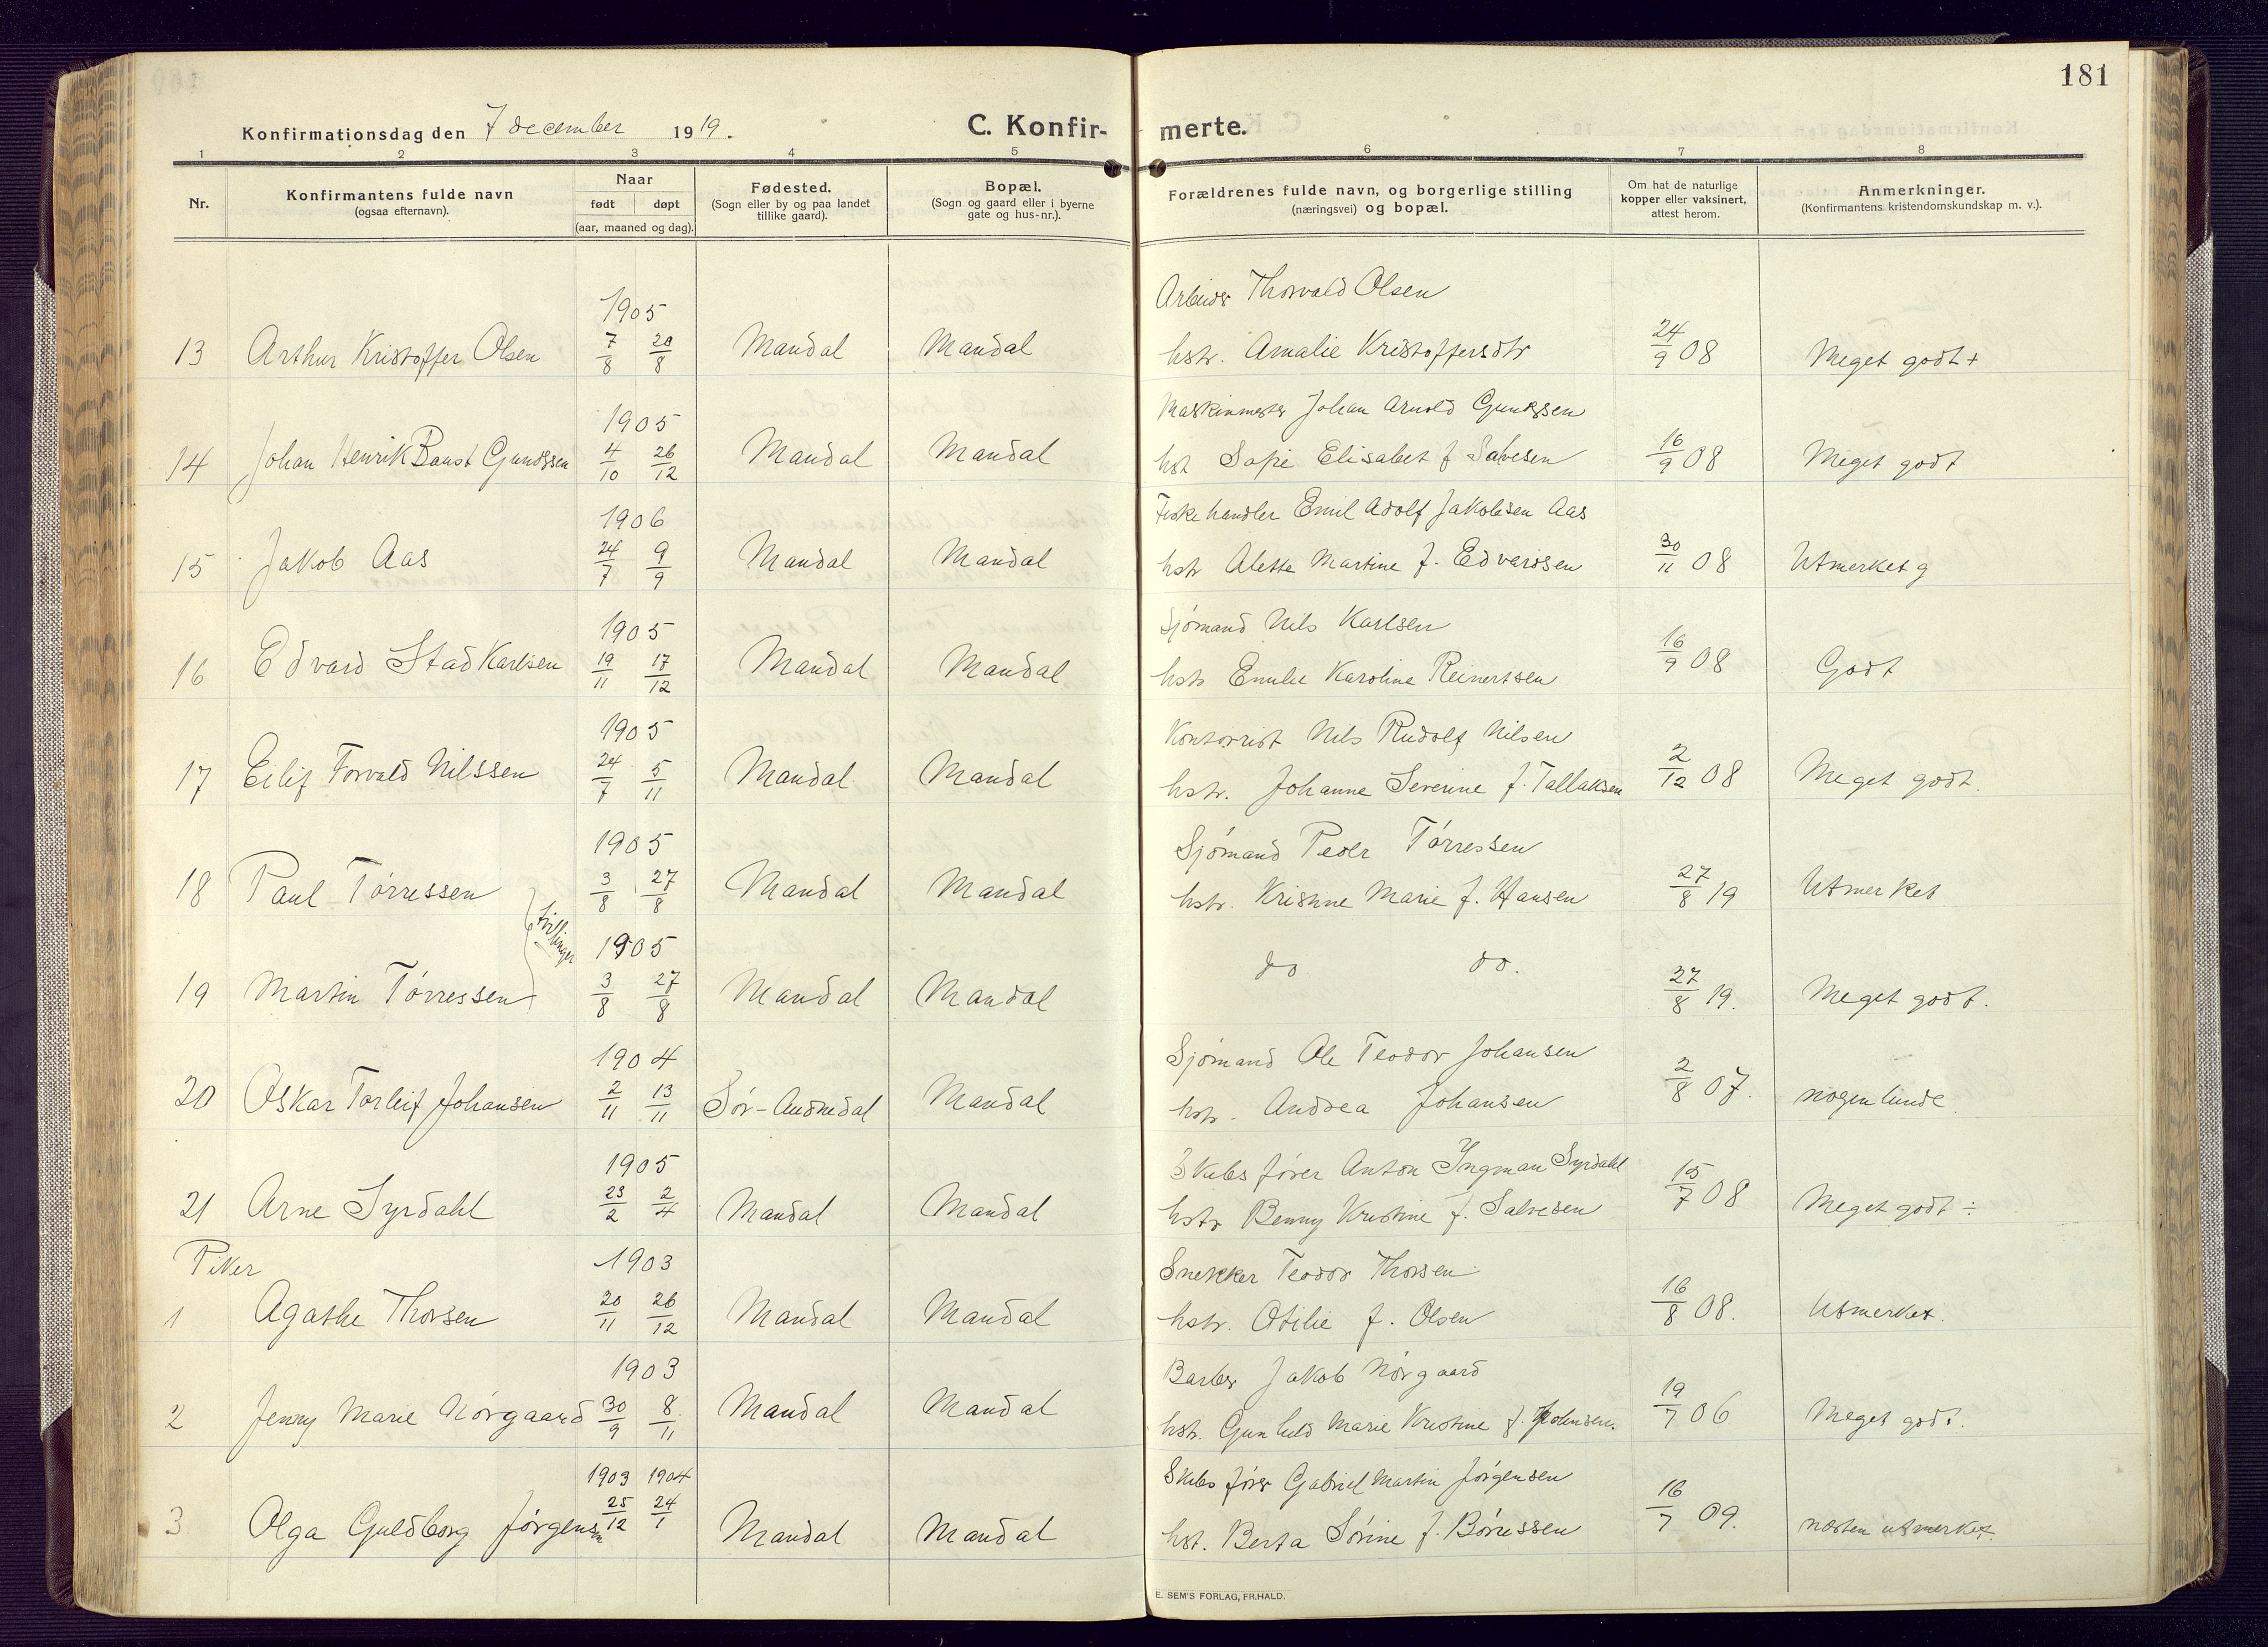 181
Konfirmationsdag den 7 december 1919.
C. Konfir-merte.
1 2 3 4 5 6 7 8
Nr.
Konfirmantens fulde navn
(ogsaa efternavn).
Naar
født døpt
(aar, maaned og dag).
Fødested.
(Sogn eller by og paa landet
tillike gaard).
Bopæl.
(Sogn og gaard eller i byerne
gate og hus-nr.).
Forældrenes fulde navn, og borgerlige stilling
(næringsvei) og bopæl.
Om hat de naturlige
kopper eller vaksinert,
attest herom.
Anmerkninger.
(Konfirmantens kristendomskundskap m. v.).
1905 Arbeider Thorvald Olsen
13 Arthur Kristoffer Olsen 7/8 20/8 Mandal Mandal hstr. Amalie Kristoffersdtr 24/9 08 Meget godt +
1905 Maskinmester Johan Arnold Gundssen
14 Johan Henrik Gundssen 4/10 26/12 Mandal Mandal hst Sofie Elisabet f Salvesen 16/9 08 Meget godt
1906 Fiskehandler Emil Adolf Jakobsen Aas
15 Jakob Aas 24/7 9/9 Mandal Mandal hstr Alette Martine f. Edvardsen 30/11 08 Utmerket g
1905 Sjømand Nils Karlsen
16 Edvard Stad Karlsen 19/11 17/12 Mandal Mandal hstr Emilie Karoline Reinertsen 16/9 08 Godt
1905 Kontorist Nils Rudolf Nilsen
17 Eilif Torvald Nilssen 24/7 5/11 Mandal Mandal hstr. Johanne Severine f. Tallaksen 2/12 08 Meget godt.
1905 Sjømand Peder Tørressen
18 Paul Tørressen 3/8 27/8 Mandal Mandal hstr. Kristine Marie f. Hansen 27/8 19 Utmerket
tvillinger
1905 do do.
19 Martin Tørressen 3/8 27/8 Mandal Mandal 27/8 19. Meget godt.
1904 Sjømand Ole Teodor Johansen
20 Oskar Torleif Johansen 2/11 13/11 Sør-Audnedal Mandal hstr. Andrea Johansen 2/8 07. nogenlunde
1905 Skibsfører Anton Ingman Syrdahl
21 Arne Syrdahl 23/2 2/4 Mandal Mandal hstr Benny Kristine f. Salvesen 15/7 08 Meget godt ÷
Piker 1903 Snekker Teodor Thorsen
1 Agathe Thorsen 20/11 26/12 Mandal Mandal hstr. Otilie f. Olsen 16/8 08. Utmerket.
1903 Barber Jakob Nørgaard
2 Jenny Marie Nørgaard 30/9 8/11 Mandal Mandal hstr. Gunhild Marie Kristine f. Johnsen. 19/7 06 Meget godt.
1903 1904 Skibsfører Gabriel Martin Jørgensen
3 Olga Guldborg Jørgensen 25/12 24/1 Mandal Mandal hst. Berta Sørine f. Børressen 16/7 09. næsten utmerket.
E. SEM'S FORLAG, FR.HALD.